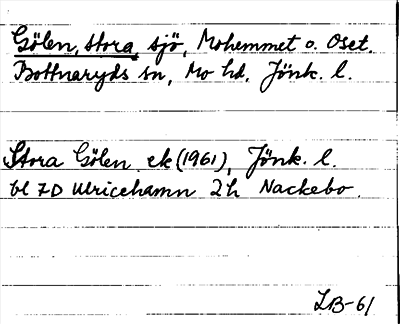 Gölen, stora, sjö, Mohemmet o. Oset.
Bottnaryds sn, Mo hd, Jönk. l.
Stora Gölen ek (1961), Jönk. l.
bl 7D Ulricehamn 2h Nackebo.
LB-61